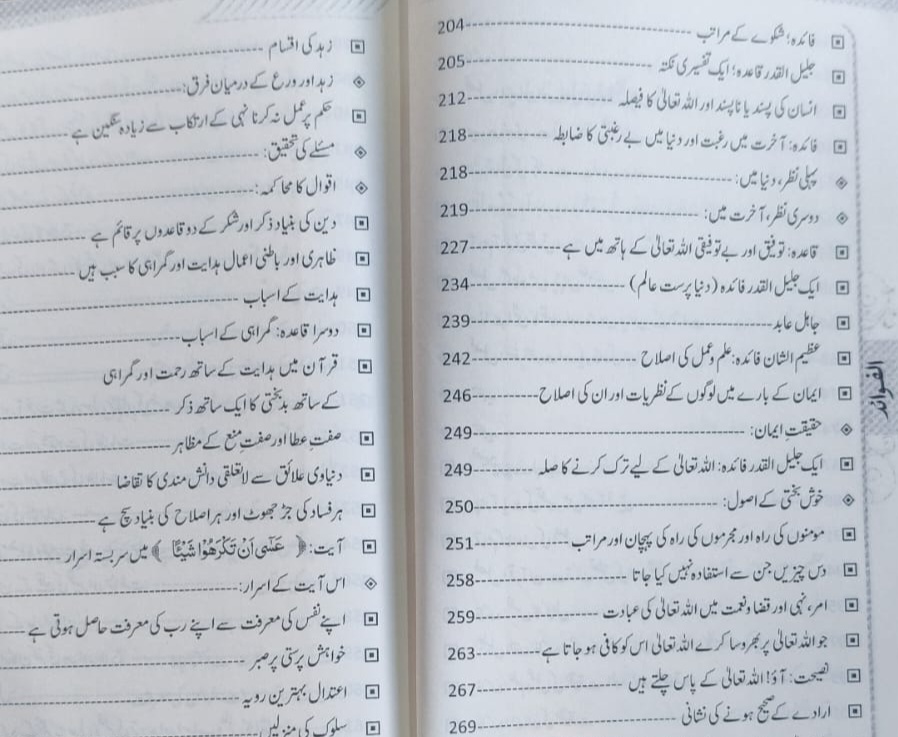 فائدہ؛ شکوے کے مراتب ------ 204
جلیل القدر قاعدہ؛ ایک تفسیری نکتہ ------ 205
انسان کی پسند یا ناپسند اور اللہ تعالیٰ کا فیصلہ ------ 212
فائدہ: آخرت میں رغبت اور دنیا میں بے رغبتی کا ضابطہ ------ 218
پہلی نظر، دنیا میں: ------ 218
دوسری نظر، آخرت میں: ------ 219
قاعدہ: توفیق اور بے توفیقی اللہ تعالیٰ کے ہاتھ میں ہے ------ 227
ایک جلیل القدر فائدہ (دنیا پرست عالم) ------ 234
جاہل عابد ------ 239
عظیم الشان فائدہ: علم و عمل کی اصلاح ------ 242
ایمان کے بارے میں لوگوں کے نظریات اور ان کی اصلاح ------ 246
حقیقتِ ایمان: ------ 249
ایک جلیل القدر فائدہ: اللہ تعالیٰ کے لیے ترک کرنے کا صلہ ------ 249
خوش بختی کے اصول: ------ 250
مومنوں کی راہ اور مجرموں کی راہ کی پہچان اور مراتب ------ 251
دس چیزیں جن سے استفادہ نہیں کیا جاتا ------ 258
امر، نہی اور قضا و نعمت میں اللہ تعالیٰ کی عبادت ------ 259
جو اللہ تعالیٰ پر بھروسا کرے اللہ تعالیٰ اس کو کافی ہو جاتا ہے ------ 263
نصیحت: آؤ! اللہ تعالیٰ کے پاس چلتے ہیں ------ 267
ارادے کے صحیح ہونے کی نشانی ------ 269
الفوائد
زہد کی اقسام ------
زہد اور ورع کے درمیان فرق: ------
حکم پر عمل نہ کرنا نہی کے ارتکاب سے زیادہ سنگین ہے ------
مسئلے کی تحقیق: ------
اقوال کا محاکمہ: ------
دین کی بنیاد ذکر اور شکر کے دو قاعدوں پر قائم ہے ------
ظاہری اور باطنی اعمال ہدایت اور گمراہی کا سبب ہیں ------
ہدایت کے اسباب ------
دوسرا قاعدہ: گمراہی کے اسباب ------
قرآن میں ہدایت کے ساتھ رحمت اور گمراہی
کے ساتھ بدبختی کا ایک ساتھ ذکر ------
صفتِ عطا اور صفتِ منع کے مظاہر ------
دنیاوی علائق سے لاتعلقی دانش مندی کا تقاضا ------
ہر فساد کی جڑ جھوٹ اور ہر اصلاح کی بنیاد سچ ہے ------
آیت: ﴿ عَسٰٓى اَنْ تَكْرَهُوْا شَيْـًٔا ﴾ میں سربستہ اسرار ------
اس آیت کے اسرار: ------
اپنے نفس کی معرفت سے اپنے رب کی معرفت حاصل ہوتی ہے ------
خواہش پرستی پر صبر ------
اعتدال بہترین رویہ ------
سلوک کی منزلیں ------